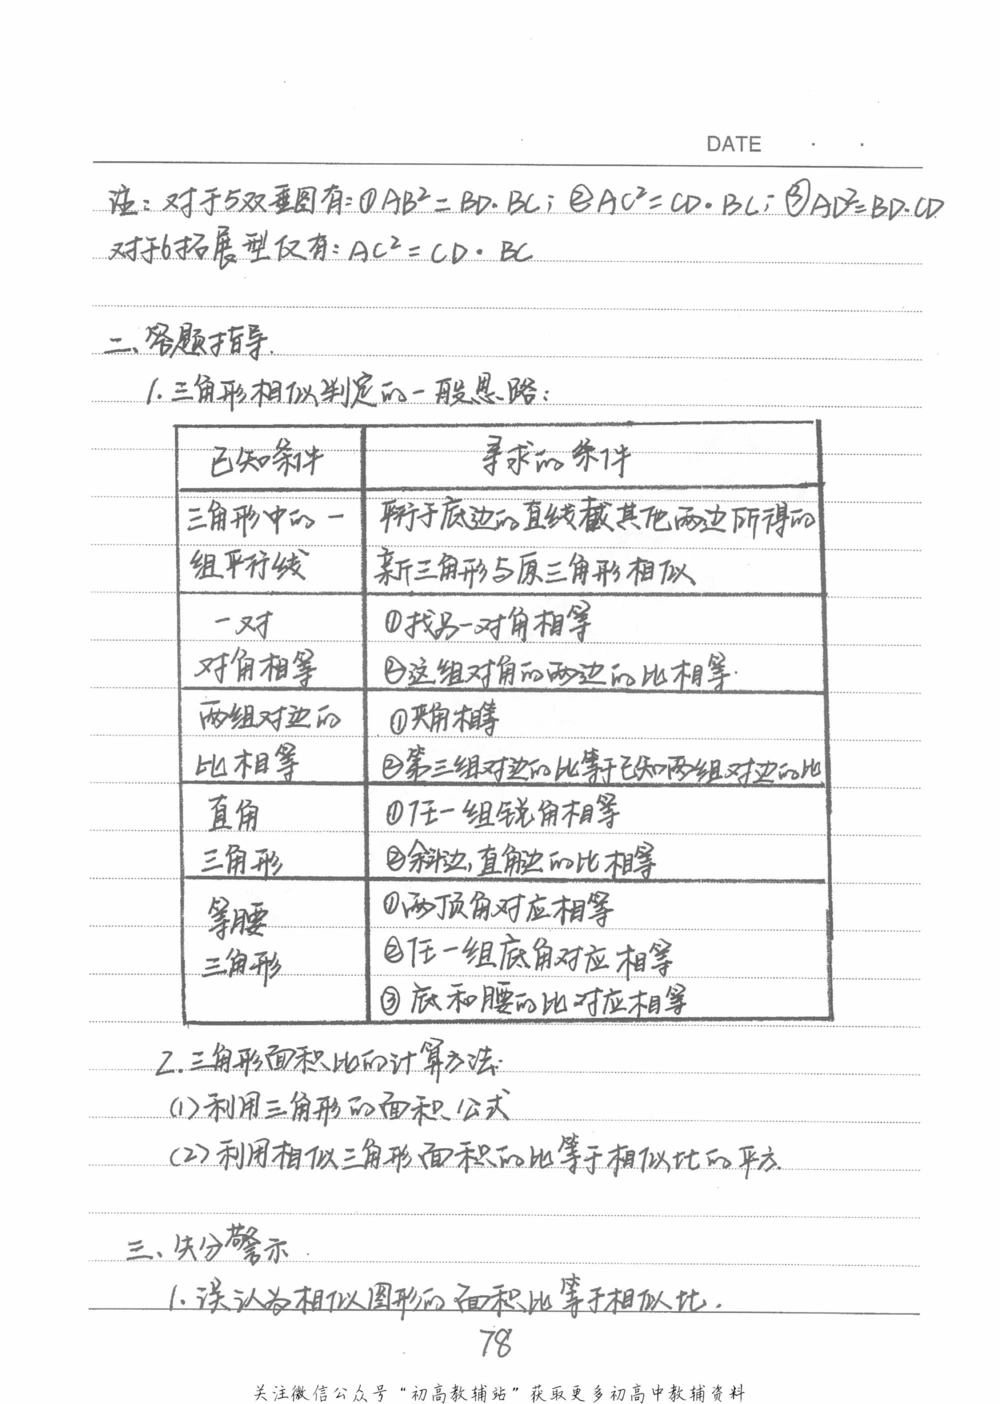 DATE · ·
注：对于5双垂图有：①AB²=BD·BC；②AC²=CD·BC；③AD²=BD·CD
对于6拓展型仅有：AC²=CD·BC
二、答题指导.
1.三角形相似判定的一般思路：
已知条件 寻求的条件
三角形中的一 平行于底边的直线截其他两边所得的
组平行线 新三角形与原三角形相似
一对 ①找另一对角相等
对角相等 ②这组对角的两边的比相等.
两组对边的 ①夹角相等
比相等 ②第三组对边的比等于已知两组对边的比
直角 ①任一组锐角相等
三角形 ②斜边,直角边的比相等
等腰 ①两顶角对应相等
三角形 ②任一组底角对应相等
③底和腰的比对应相等
2.三角形面积比的计算方法.
(1)利用三角形的面积公式
(2)利用相似三角形面积的比等于相似比的平方.
三、失分警示.
1.误认为相似图形的面积比等于相似比.
78
关注微信公众号“初高教辅站”获取更多初高中教辅资料